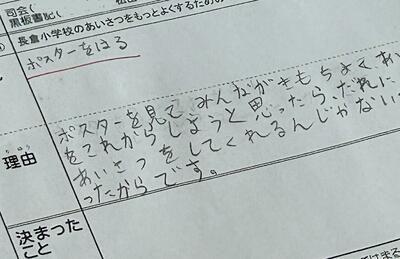 司会(
黒板書記(
長倉小学校のあいさつをもっとよくするための
ポスターをはる
理由
りゆう
ポスターを見て、みんながきもちよくあい
をこれからしようと思ったら、だれに
あいさつをしてくれるんじゃない
ったからです。
決まった
こと